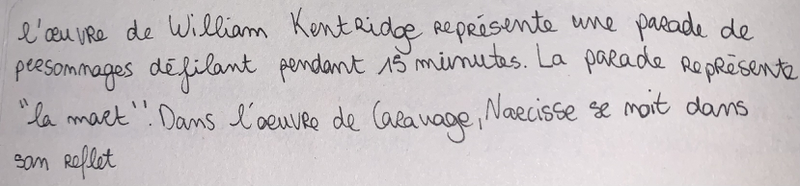 l'œuvre de William Kentridge représente une parade de
personnages défilant pendant 15 minutes. La parade représente
"la mort". Dans l'oeuvre de Caravage, Narcisse se noit dans
son reflet